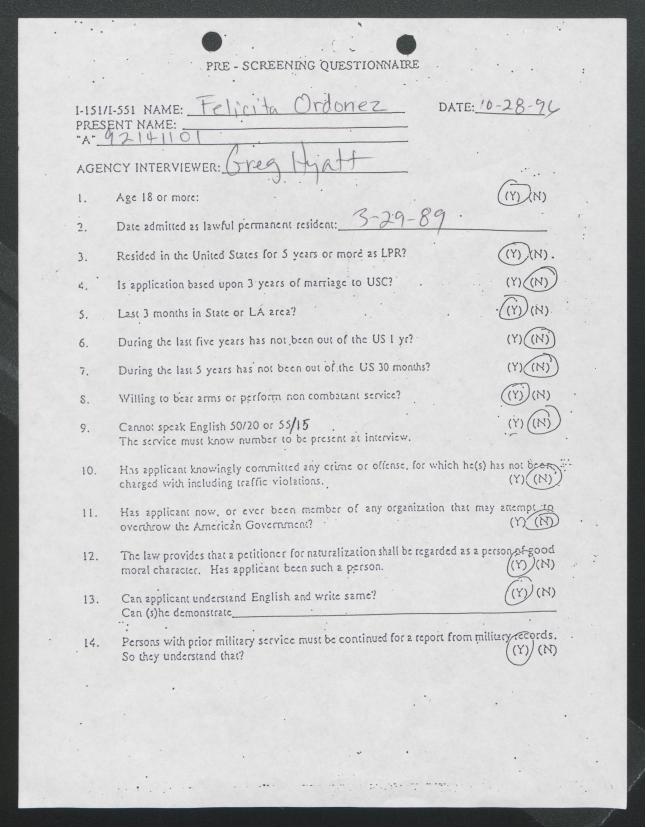 PRE - SCREENING QUESTIONNAIRE
I-151/I-551 NAME: Felicita Ordonez DATE: 10-28-96
PRESENT NAME:
"A" 92141101
AGENCY INTERVIEWER: Greg Hyatt
1. Age 18 or more: (Y) (N)
2. Date admitted as lawful permanent resident: 3-29-89
3. Resided in the United States for 5 years or more as LPR? (Y) (N)
4. Is application based upon 3 years of marriage to USC? (Y) (N)
5. Last 3 months in State or LA area? (Y) (N)
6. During the last five years has not been out of the US 1 yr? (Y) (N)
7. During the last 5 years has not been out of the US 30 months? (Y) (N)
8. Willing to bear arms or perform non combatant service? (Y) (N)
9. Cannot speak English 50/20 or 55/15 (Y) (N)
The service must know number to be present at interview.
10. Has applicant knowingly committed any crime or offense, for which he(s) has not been
charged with including traffic violations. (Y) (N)
11. Has applicant now, or ever been member of any organization that may attempt to
overthrow the American Government? (Y) (N)
12. The law provides that a petitioner for naturalization shall be regarded as a person of good
moral character. Has applicant been such a person. (Y) (N)
13. Can applicant understand English and write same? (Y) (N)
Can (s)he demonstrate
14. Persons with prior military service must be continued for a report from military records.
So they understand that? (Y) (N)